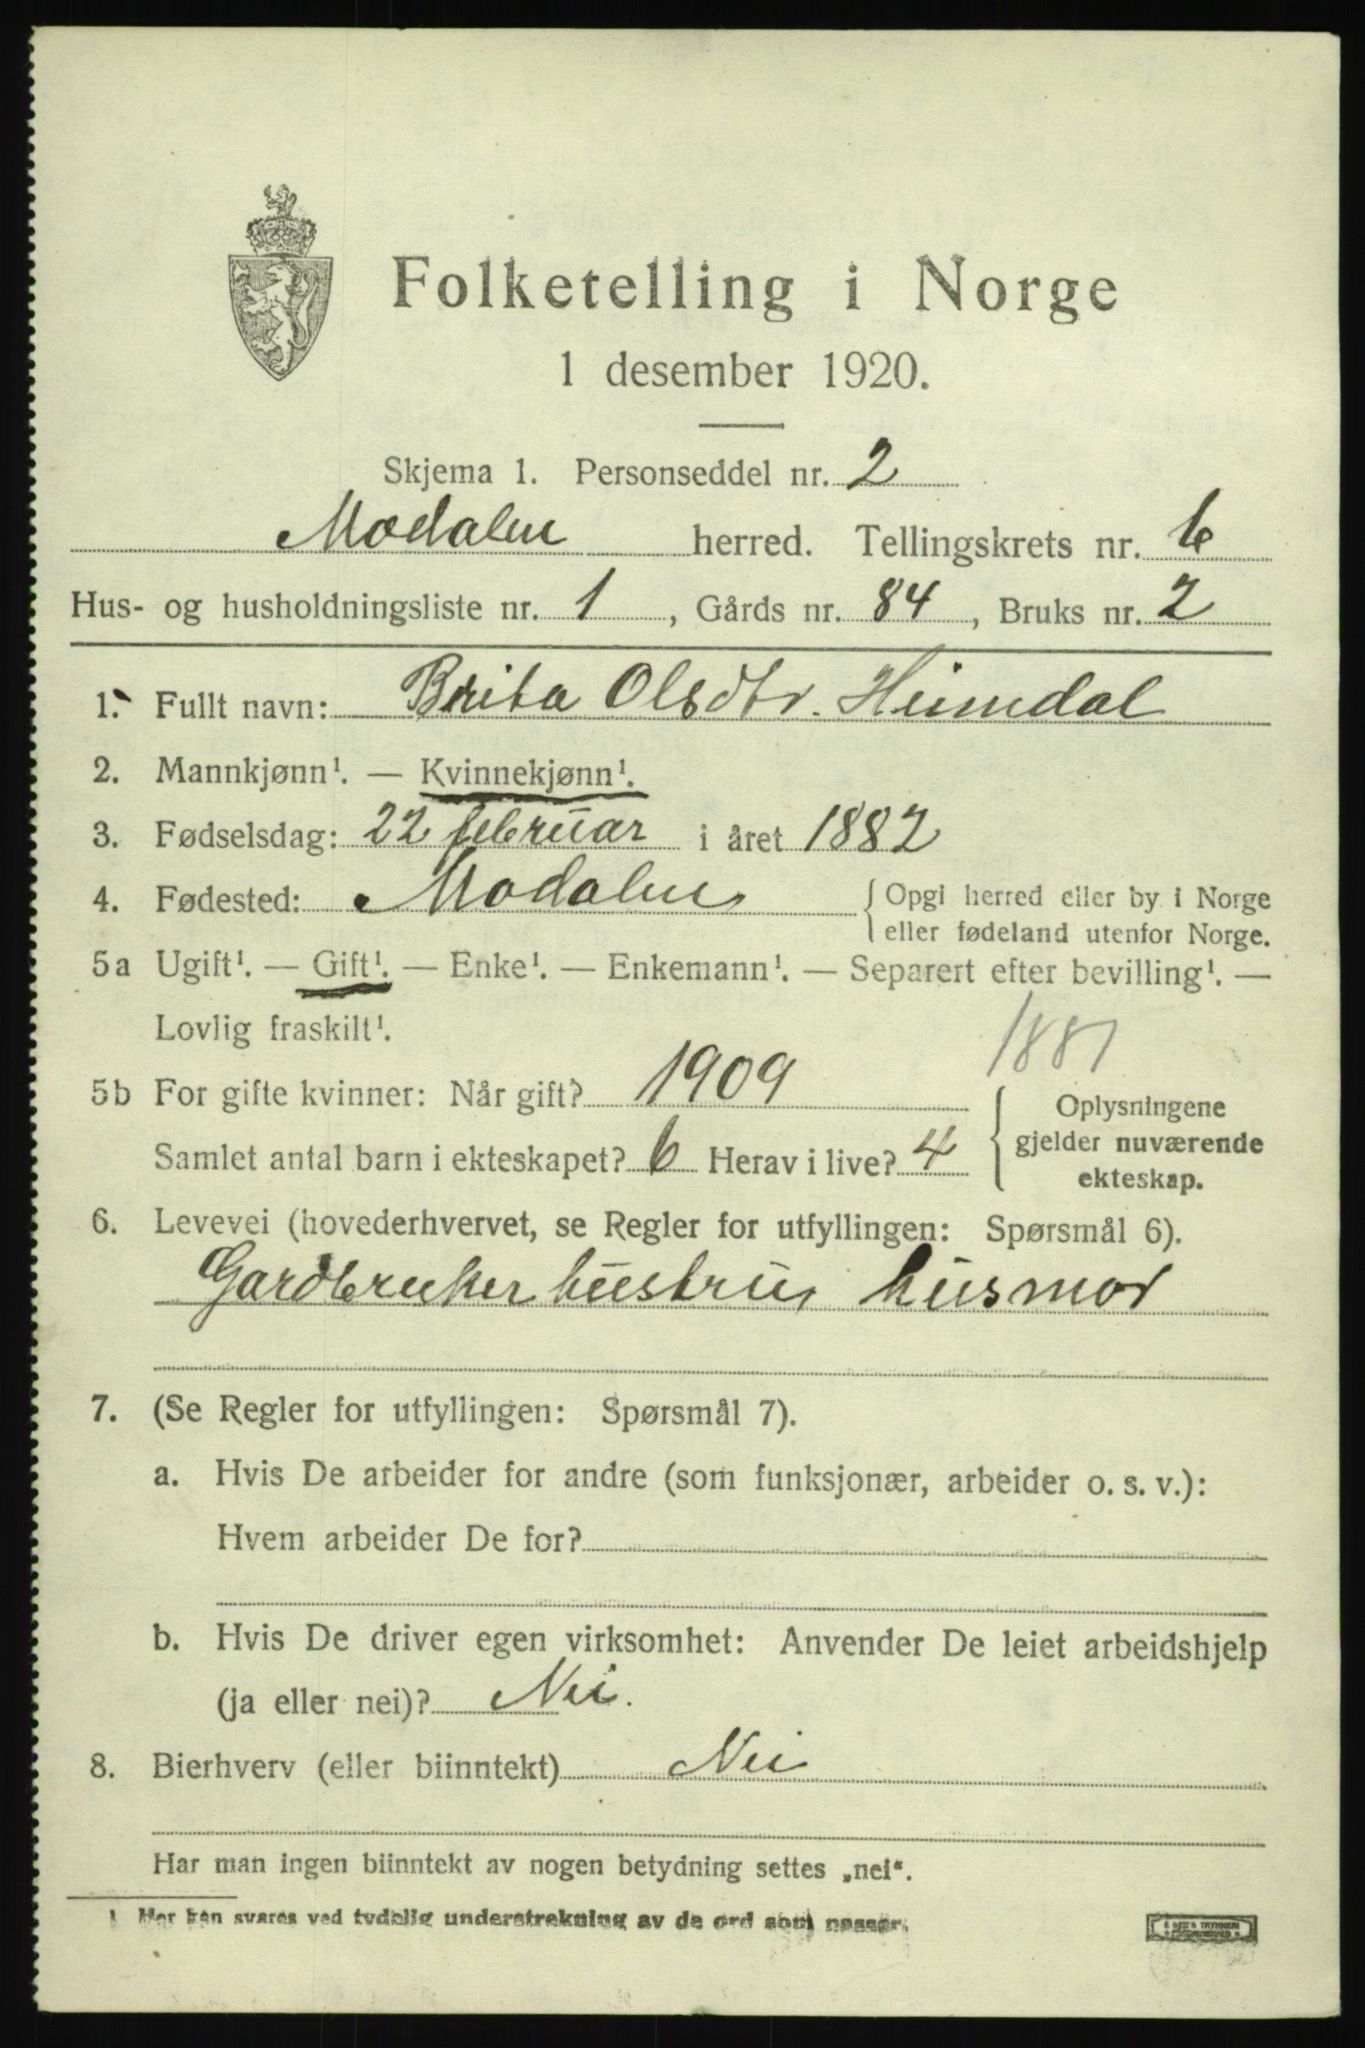 Folketelling i Norge
1 desember 1920.
Skjema 1. Personseddel nr. 2
Modalen herred. Tellingskrets nr. 6
Hus- og husholdningsliste nr. 1, Gårds nr. 84, Bruks nr. 2
1. Fullt navn: Brita Olsdtr. Heimdal
2. Mannkjønn¹. — Kvinnekjønn¹.
3. Fødselsdag: 22 februar i året 1882
4. Fødested: Modalen { Opgi herred eller by i Norge
eller fødeland utenfor Norge.
5a Ugift¹. — Gift¹. — Enke¹. — Enkemann¹. — Separert efter bevilling¹. —
Lovlig fraskilt¹.
1881
5b For gifte kvinner: Når gift? 1909
Samlet antal barn i ekteskapet? 6 Herav i live? 4
{ Oplysningene
gjelder nuværende
ekteskap.
6. Levevei (hovederhvervet, se Regler for utfyllingen: Spørsmål 6).
Gardbruker hustru, husmor
7. (Se Regler for utfyllingen: Spørsmål 7).
a. Hvis De arbeider for andre (som funksjonær, arbeider o. s. v.):
Hvem arbeider De for?
b. Hvis De driver egen virksomhet: Anvender De leiet arbeidshjelp
(ja eller nei)? Nei.
8. Bierhverv (eller biinntekt) Nei
Har man ingen biinntekt av nogen betydning settes „nei“.
¹ Her kan svares ved tydelig understrekning av de ord som passer.